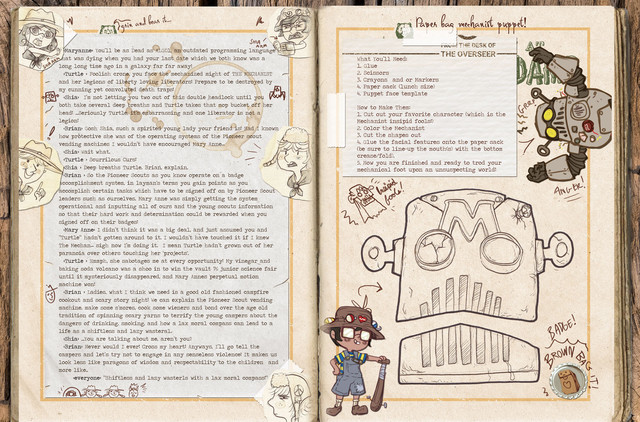 Grin and bear it.
-Maryanne- You'll be as dead as an outdated programming language
that was dying when you had your last date which we both know was a
long long time ago in a galaxy far far away!
-Turtle - Foolish crone you face the mechanized might of THE MECHANIST
and her legions of liberty loving liberators! Prepare to be destroyed by
my cunning yet convoluted death traps!
-Shia- I'm not letting you two out of this double headlock until you
both take several deep breaths and Turtle takes that mop bucket off her
head! ...Seriously Turtle it's embarrassing and one liberator is not a
legion!
-Brian- Gosh Shia, such a spirited young lady your friend is! Had I known
how protective she was of the operating system of the Pioneer Scout
vending machine I wouldn't have encouraging Mary Anne...
-Shia- Wait what.
-Turtle - Scurrilous Curs!
-Shia - Deep breaths Turtle. Brian, explain.
-Brian - So the Pioneer Scouts as you know operate on a badge
accomplishment system. In layman's terms you gain points as you
accomplish certain tasks which have to be signed off on by Pioneer Scout
leaders such as ourselves. Mary Anne was simply getting the system
operational and inputting all of ours and the young scouts information
so that their hard work and determination could be rewarded when you
signed off on their badges!
-Mary Anne- I didn't think it was a big deal, and just assumed you and
"Turtle" hadn't gotten around to it. I wouldn't have touched it if I knew
The Mechan... ugh now I'm doing it. I mean Turtle hadn't grown out of her
paranoia over others touching her 'projects'.
-Turtle - Hmmph, she sabotages me at every opportunity! My vinegar and
baking soda volcano was a shoe in to win the Vault 75 junior science fair
until it mysteriously disappeared, and Mary Annes perpetual motion
machine won!
-Brian - Ladies, what I think we need is a good old fashioned campfire
cookout and scary story night! We can explain the Pioneer Scout vending
machine, make some s'mores, cook some wieners and bond over the age old
tradition of spinning scary yarns to terrify the young campers about the
dangers of drinking, smoking, and how a lax moral compass can lead to a
life as a shiftless and lazy wasteral.
-Shia - ...You are talking about me, aren't you?
-Brian- Never would I ever! Cross my heart! Anyways, I'll go tell the
campers and let's try not to engage in any senseless violence! It makes us
look less like paragons of wisdom and respectability to the children and
more like..
-everyone- "Shiftless and lazy wasterls with a lax moral compass!"
Paper bag mechanist puppet!
FROM THE DESK OF
THE OVERSEER
What You'll Need:
1. Glue
2. Scissors
3. Crayons and or Markers
4. Paper sack (lunch size)
5. Puppet face template
How to Make Them:
1. Cut out your favorite character (which is the
Mechanist insipid fools!)
2. Color the Mechanist
3. Cut the shapes out
4. Glue the facial features onto the paper sack
(be sure to line-up the mouth! with the bottom
crease/fold).
5. Now you are finished and ready to trod your
mechanical foot upon an unsuspecting world!
M
BADGE!
BROWN BAG IT!